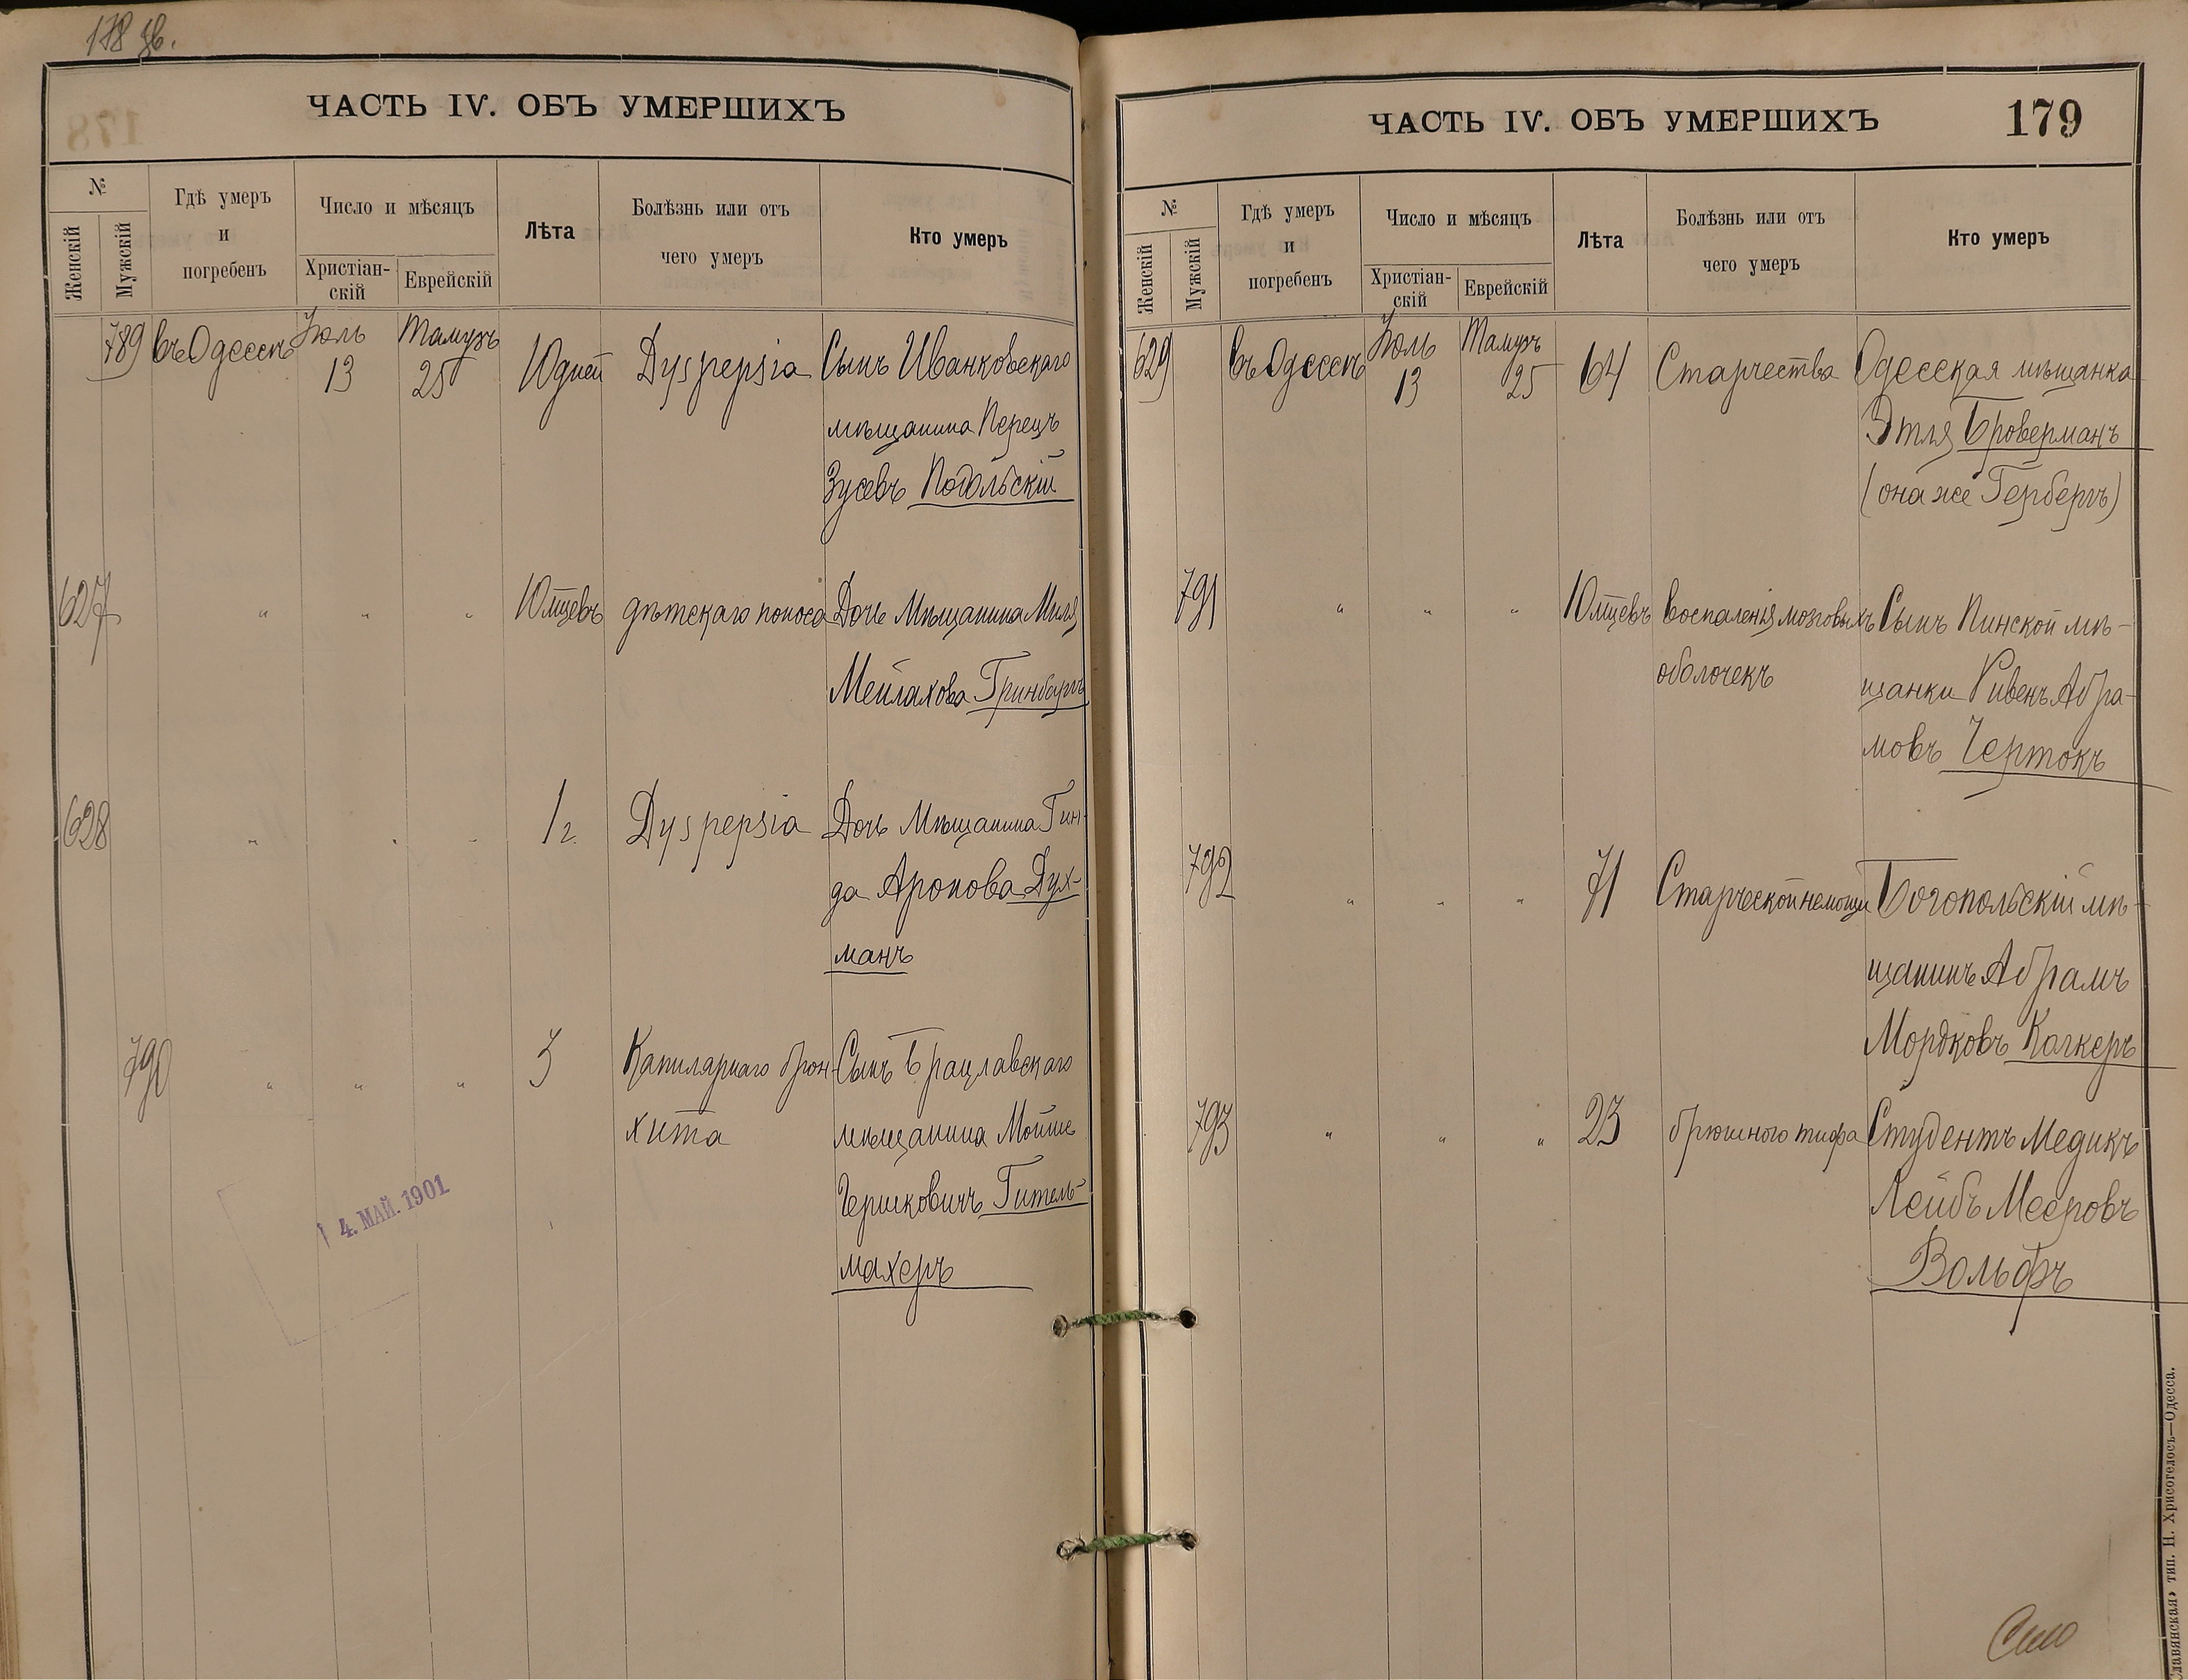 178 об.
ЧАСТЬ IV. ОБЪ УМЕРШИХЪ
№
Женскій
Мужскій
Гдѣ умеръ
и
погребенъ
Число и мѣсяцъ
Христіан-
скій
Еврейскій
Лѣта
Болѣзнь или отъ
чего умеръ
Кто умеръ
789 въ Одессѣ Іюль 13 Тамузъ 25 10 дней Dyspepsia Сынъ Иванковскаго
мѣщанина Перецъ
Зусевъ Подольскій
627 " " " 10 мцевъ дѣтскаго поноса Дочь Мѣщанина Миля
Мейлахова Гринбергъ
628 " " " 1 г. Dyspepsia Дочь Мѣщанина Гин-
да Аронова Дух-
манъ
790 " " " 3 Капилярнаго брон- Сынъ Брацлавскаго
хита мѣщанина Мойше
Гершковичъ Гитель-
махеръ
4. МАЙ. 1901
ЧАСТЬ IV. ОБЪ УМЕРШИХЪ
179
№
Женскій
Мужскій
Гдѣ умеръ
и
погребенъ
Число и мѣсяцъ
Христіан-
скій
Еврейскій
Лѣта
Болѣзнь или отъ
чего умеръ
Кто умеръ
629 въ Одессѣ Іюль 13 Тамузъ 25 64 Старчества Одесская мѣщанка
Этля Броверманъ
(она же Герберъ)
791 " " " 10 мцевъ воспаленія мозговыхъ Сынъ Пинской мѣ-
оболочекъ щанки Рувенъ Абра-
мовъ Чертокъ
792 " " " 71 Старческой немощи Богопольскій мѣ-
щанинъ Абрамъ
Мордковъ Калкеръ
793 " " " 23 брюшного тифа Студентъ Медикъ
Лейбъ Мееровъ
Вольфъ
«Славянская» тип. Н. Хрисогелосъ—Одесса.